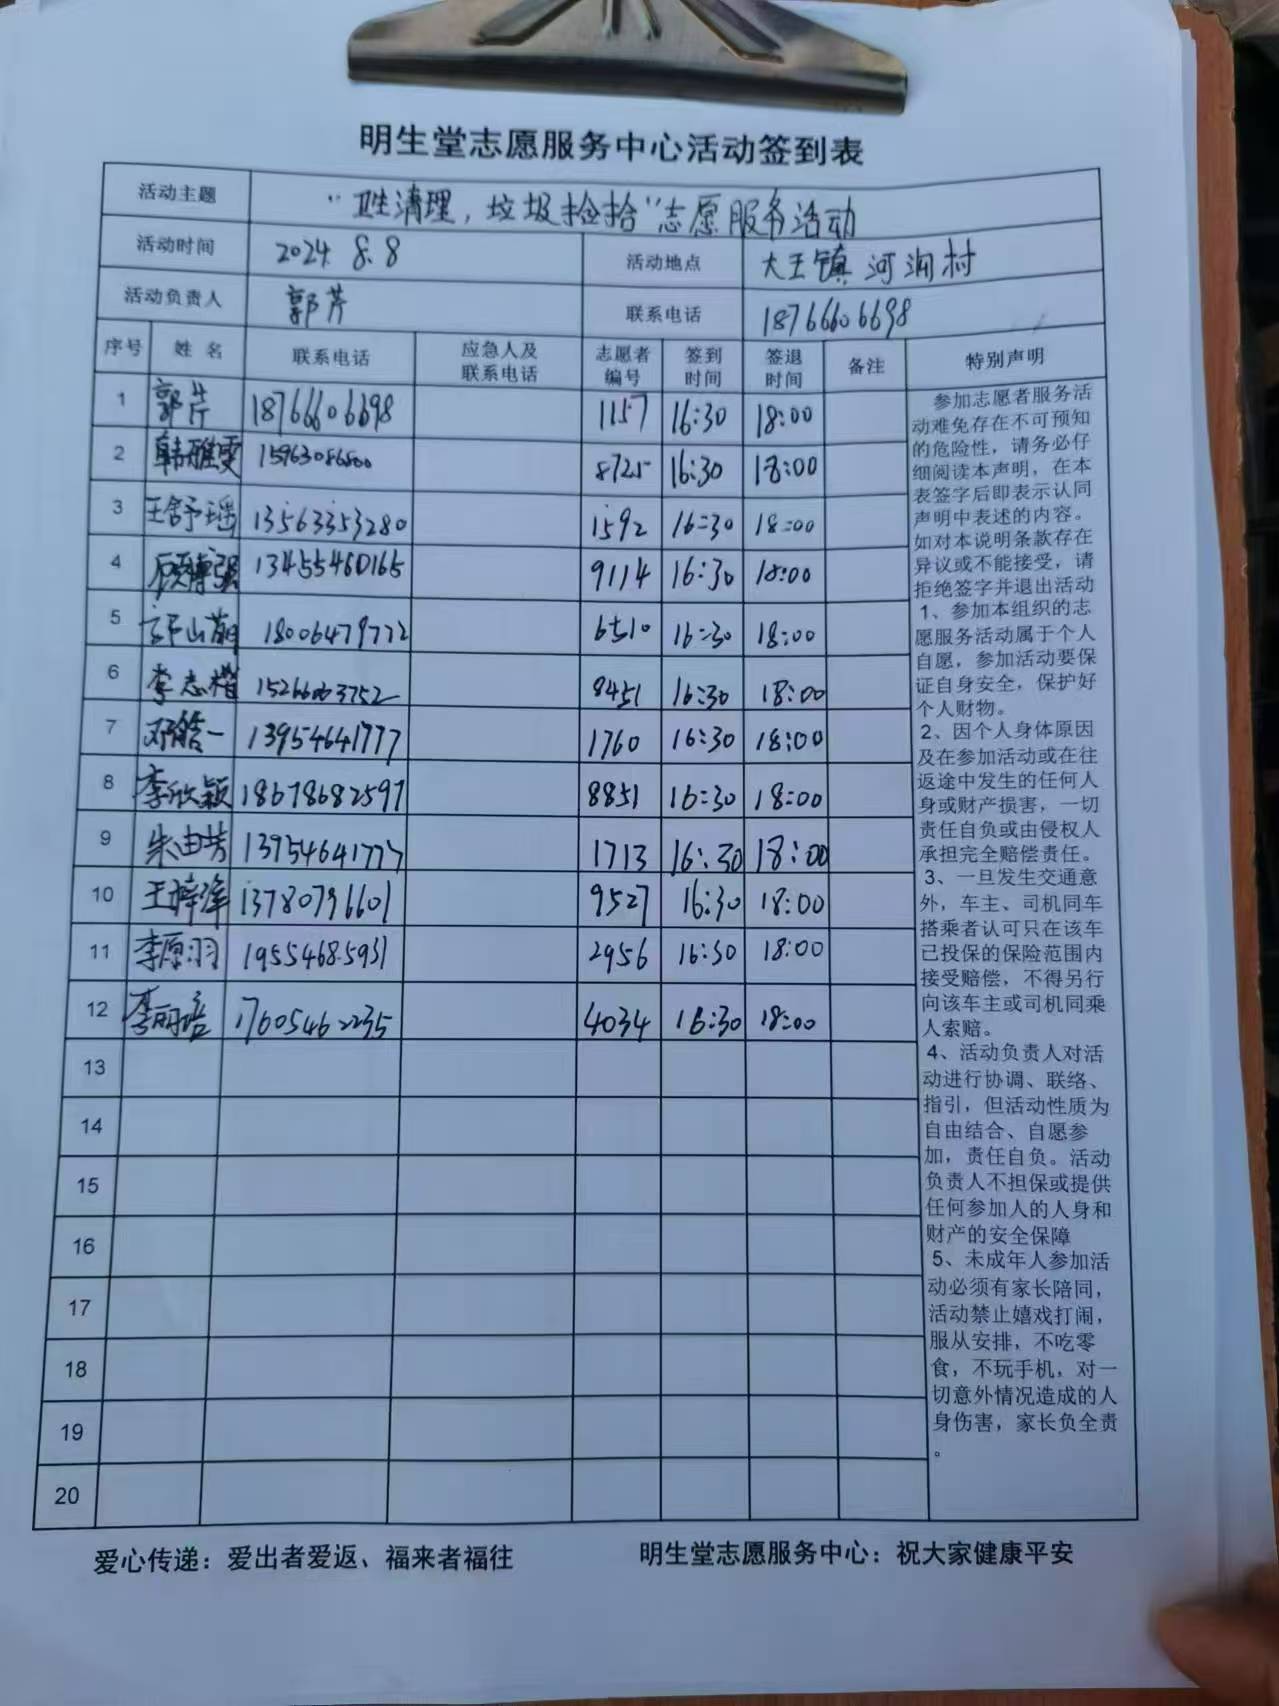 明生堂志愿服务中心活动签到表
活动主题 “卫生清理，垃圾捡拾”志愿服务活动
活动时间 2024. 8.8 活动地点 大王镇河润村
活动负责人 郭芹 联系电话 18766606698
序号 姓名 联系电话 应急人及联系电话 志愿者编号 签到时间 签退时间 备注 特别声明
1 郭芹 18766606698 1157 16:30 18:00
2 韩雅雯 15963086800 8725 16:30 18:00
3 王舒瑶 13563353280 1592 16:30 18:00
4 顾博强 13455460165 9114 16:30 18:00
5 18006479772 6510 16:30 18:00
6 李志楷 15266063752 8451 16:30 18:00
7 邓皓一 13954641777 1760 16:30 18:00
8 李欣颖 18678682597 8851 16:30 18:00
9 朱由芳 13954641777 1713 16:30 18:00
10 王梓泽 13780796601 9527 16:30 18:00
11 李原羽 19554685931 2956 16:30 18:00
12 17605462235 4034 16:30 18:00
13
14
15
16
17
18
19
20
参加志愿者服务活
动难免存在不可预知
的危险性，请务必仔
细阅读本声明，在本
表签字后即表示认同
声明中表述的内容。
如对本说明条款存在
异议或不能接受，请
拒绝签字并退出活动
1、参加本组织的志
愿服务活动属于个人
自愿，参加活动要保
证自身安全，保护好
个人财物。
2、因个人身体原因
及在参加活动或在往
返途中发生的任何人
身或财产损害，一切
责任自负或由侵权人
承担完全赔偿责任。
3、一旦发生交通意
外，车主、司机同车
搭乘者认可只在该车
已投保的保险范围内
接受赔偿，不得另行
向该车主或司机同乘
人索赔。
4、活动负责人对活
动进行协调、联络、
指引，但活动性质为
自由结合、自愿参
加，责任自负。活动
负责人不担保或提供
任何参加人的人身和
财产的安全保障
5、未成年人参加活
动必须有家长陪同，
活动禁止嬉戏打闹，
服从安排，不吃零
食，不玩手机，对一
切意外情况造成的人
身伤害，家长负全责
。
爱心传递：爱出者爱返、福来者福往 明生堂志愿服务中心：祝大家健康平安